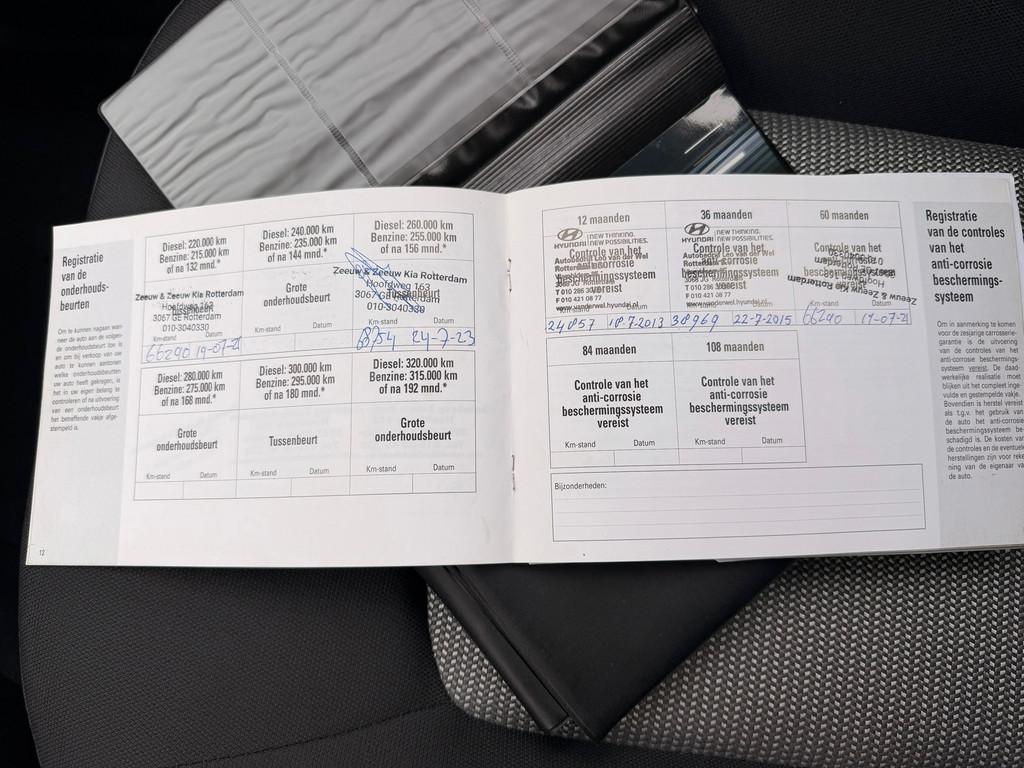 Registratie
van de
onderhouds-
beurten
Om te kunnen nagaan wan-
neer de auto aan de volgen-
de onderhoudsbeurt toe is
en om bij verkoop van uw
auto te kunnen aantonen
welke onderhoudsbeurten
uw auto heeft gekregen, is
het in uw eigen belang te
controleren of na uitvoering
van een onderhoudsbeurt
het betreffende vakje afge-
stempeld is.
12
Diesel: 220.000 km
Benzine: 215.000 km
of na 132 mnd.*
Zeeuw & Zeeuw Kia Rotterdam
Hoofdweg 163
3067 GE Rotterdam
010-3040330
66290 19-07-21
Diesel: 240.000 km
Benzine: 235.000 km
of na 144 mnd.*
Grote
onderhoudsbeurt
Km-stand Datum
Diesel: 260.000 km
Benzine: 255.000 km
of na 156 mnd.*
Zeeuw & Zeeuw Kia Rotterdam
Hoofdweg 163
Tussenbeurt
3067 GE Rotterdam
010-3040330
Km-stand Datum
68754 24-7-23
Diesel: 280.000 km
Benzine: 275.000 km
of na 168 mnd.*
Grote
onderhoudsbeurt
Km-stand Datum
Diesel: 300.000 km
Benzine: 295.000 km
of na 180 mnd.*
Tussenbeurt
Km-stand Datum
Diesel: 320.000 km
Benzine: 315.000 km
of na 192 mnd.*
Grote
onderhoudsbeurt
Km-stand Datum
12 maanden
HYUNDAI NEW THINKING.
NEW POSSIBILITIES.
Controle van het
Autobedrijf Leo van der Wel
anti-corrosie
beschermingssysteem
vereist
F 010 421 08 77
www.vanderwel.hyundai.nl
24857 18-7-2013
36 maanden
HYUNDAI NEW THINKING.
NEW POSSIBILITIES.
Controle van het
Autobedrijf Leo van der Wel
anti-corrosie
beschermingssysteem
vereist
F 010 421 08 77
www.vanderwel.hyundai.nl
Datum
38969 22-7-2015
60 maanden
Controle van het
anti-corrosie
beschermingssysteem
vereist
Zeeuw & Zeeuw Kia Rotterdam
Km-stand Datum
66290 19-07-21
84 maanden
Controle van het
anti-corrosie
beschermingssysteem
vereist
Km-stand Datum
108 maanden
Controle van het
anti-corrosie
beschermingssysteem
vereist
Km-stand Datum
Bijzonderheden:
Registratie
van de controles
van het
anti-corrosie
beschermings-
systeem
Om in aanmerking te komen
voor de zesjarige carrosserie-
garantie is de uitvoering
van de controles van het
anti-corrosie beschermings-
systeem vereist. De daad-
werkelijke realisatie moet
blijken uit het compleet inge-
vulde en gestempelde vakje.
Bovendien is herstel vereist
als t.g.v. het gebruik van
de auto het anti-corrosie
beschermingssysteem be-
schadigd is. De kosten van
de controles en de eventuele
herstellingen zijn voor reke-
ning van de eigenaar van
de auto.